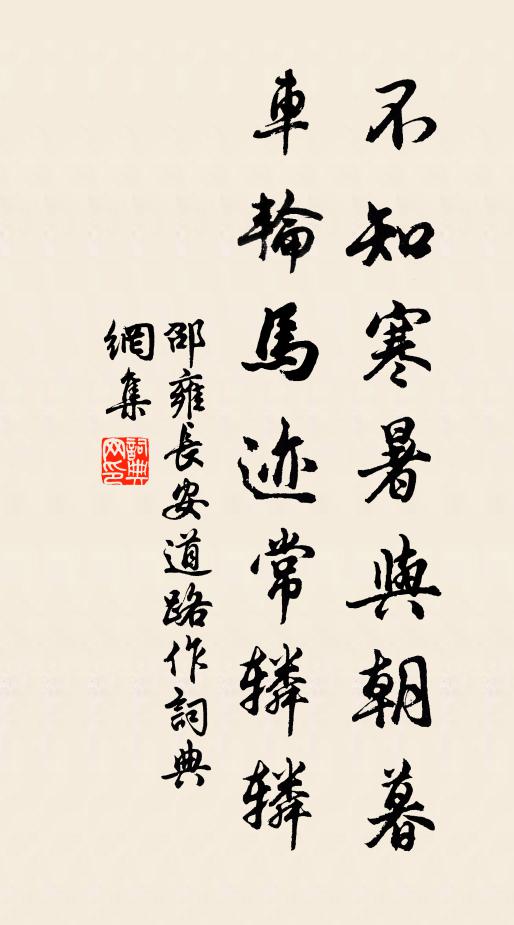 不知寒暑與朝暮
車輪馬迹常轔轔
邵雍長安道路作詞典
網集
詞典
网印